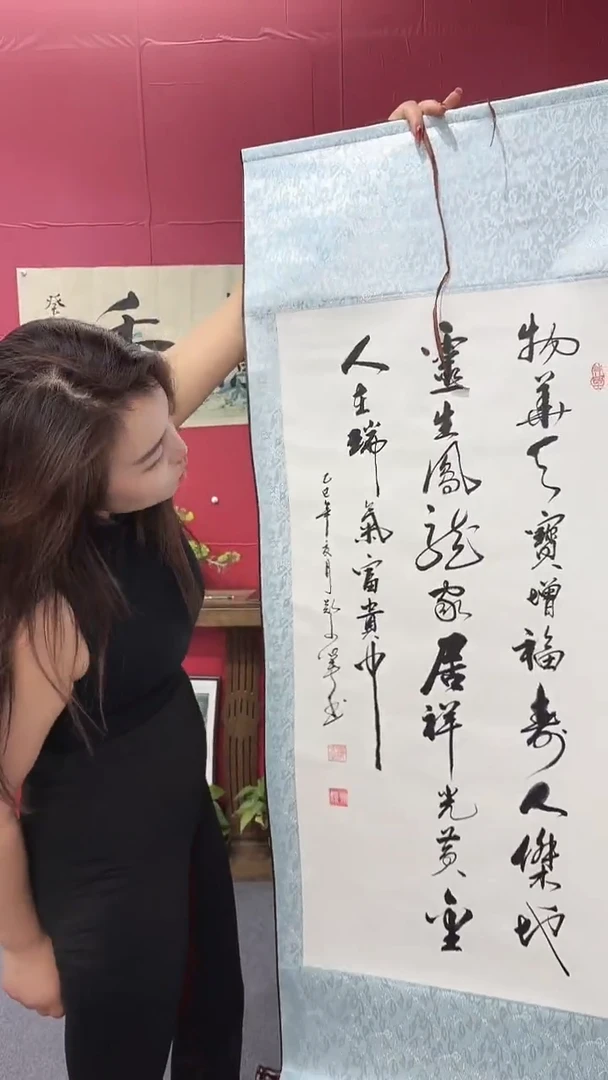 物華天寶增福壽人傑地
靈生鳳龍家居祥光黃金
人在瑞氣富貴中
乙巳年夏月
癸